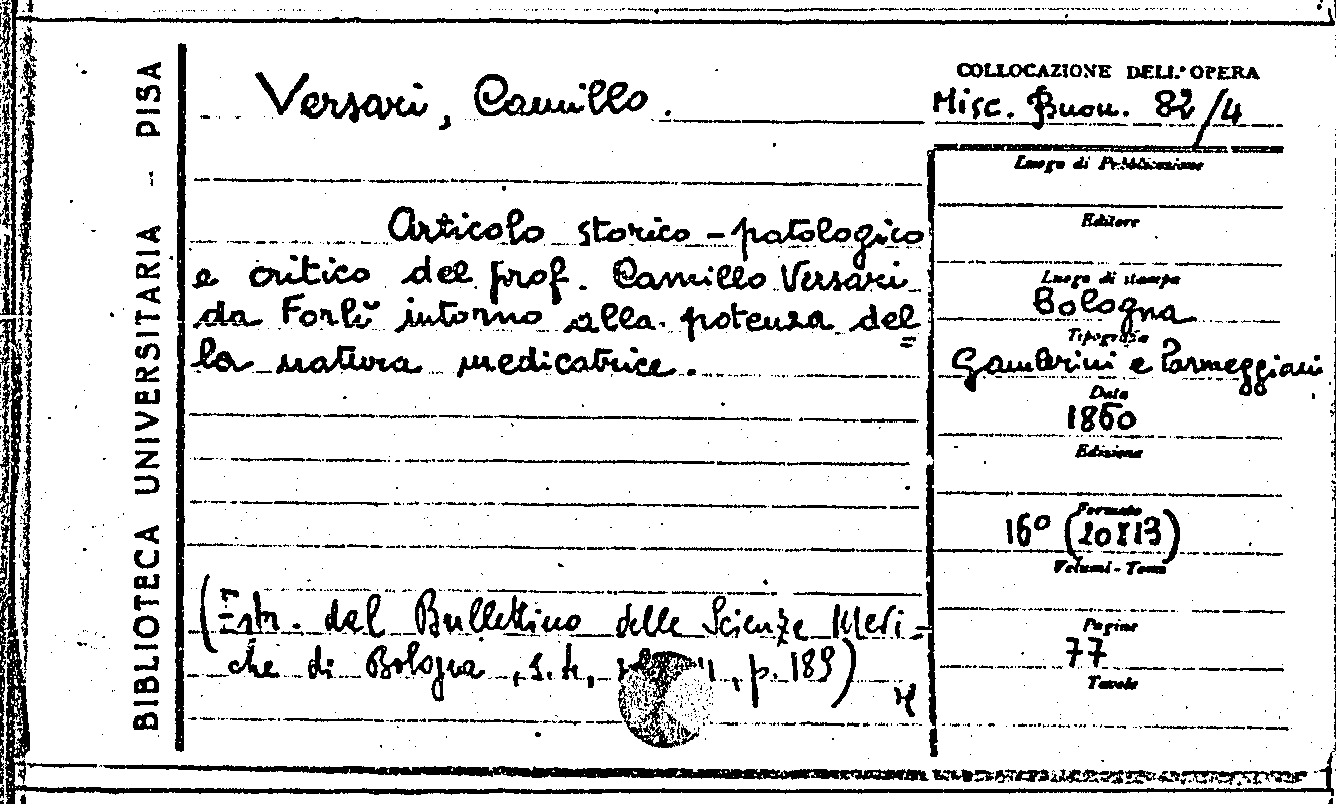 BIBLIOTECA UNIVERSITARIA - PISA
Versari, Camillo.
Articolo storico-patologico
e critico del prof. Camillo Versari
da Forlì intorno alla potenza del=
la natura medicatrice.
(Estr. dal Bullettino delle Scienze Medi-
che di Bologna, s. 4, p. 189)
COLLOCAZIONE DELL'OPERA
Misc. Buon. 82/4
Luogo di Pubblicazione
Editore
Luogo di stampa
Bologna
Tipografia
Gamberini e Parmeggiani
Data
1860
Edizione
Formato
16° (20x13)
Volumi - Tomi
Pagine
77
Tavole